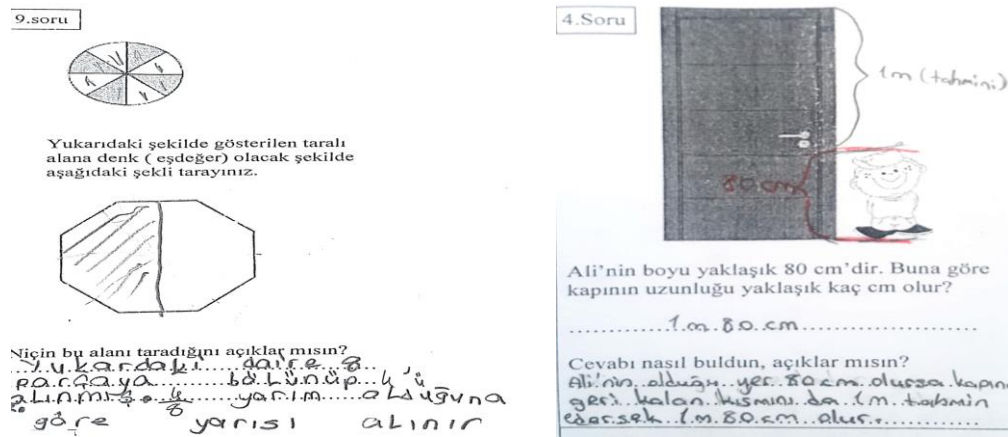 9.soru
Yukarıdaki şekilde gösterilen taralı
alana denk ( eşdeğer) olacak şekilde
aşağıdaki şekli tarayınız.
Niçin bu alanı taradığını açıklar mısın?
Yukardaki daire 8
parçaya bölünüp 4'ü
alınmış. 4/8 yarım olduğuna
göre yarısı alınır
4.Soru
1m (tahmini)
80 cm
Ali'nin boyu yaklaşık 80 cm'dir. Buna göre
kapının uzunluğu yaklaşık kaç cm olur?
1 m 80 cm
Cevabı nasıl buldun, açıklar mısın?
Ali'nin olduğu yer 80 cm olursa kapın
geri kalan kısmını da 1m tahmin
edersek 1m 80 cm olur.